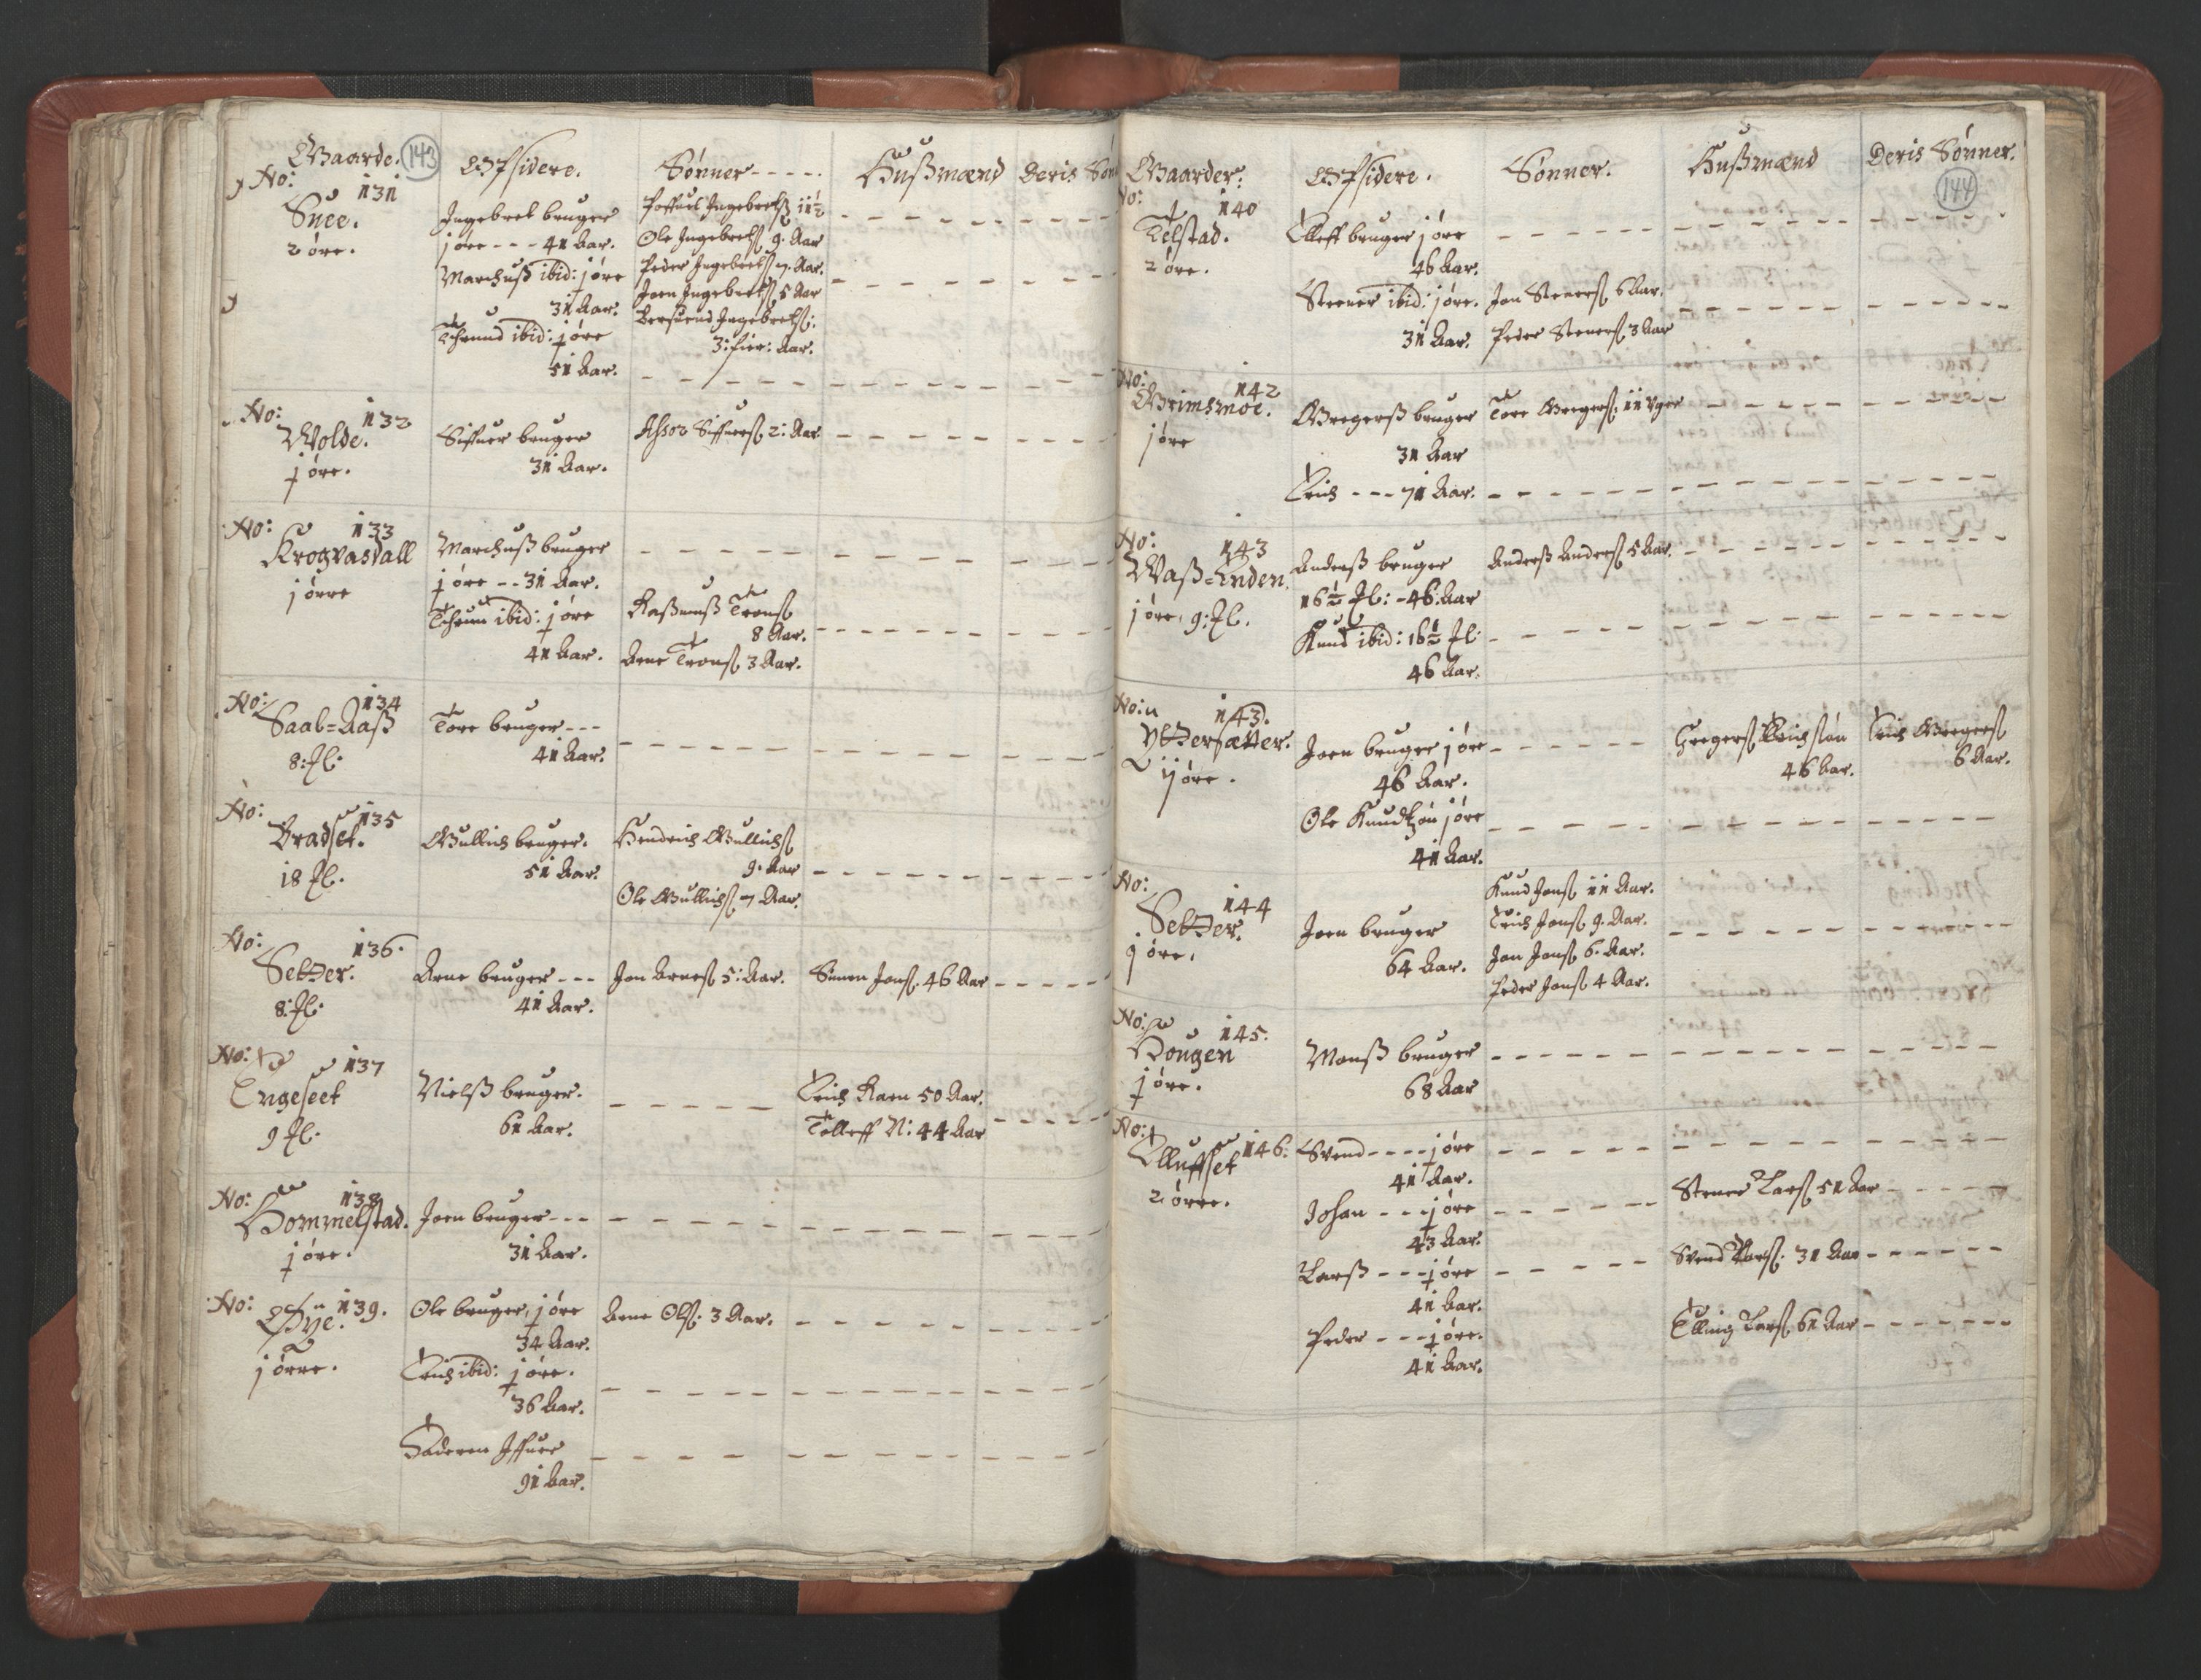 Gaarde. 143 Opsidere. Sønner Hußmænd Deris Søn
No: 131
Snee.
2 øre.
Ingebret bruger
j øre - - - 41 Aar.
Marchuß ibid: j øre
31 Aar.
Thrund ibid: j øre
51 Aar.
Poffuel Ingebretß 11½
Ole Ingebretß 9. Aar
Peder Ingebretß 7. Aar.
Joen Ingebretß 5 Aar
Ingebretß:
3: fier: Aar.
No: 132
Wolde.
j øre.
Siffuer bruger
31 Aar.
Assor Siffuerß 2: Aar
No: 133
Krogvasdall
j ørre
Marchuß bruger
j øre - - 31 Aar.
Thrun ibid: j øre
41 Aar.
Raßmuß Tronß
8 Aar.
Arne Tronß 3 Aar.
No: 134
Saal=Aaß
8: Fl:
Tore bruger - - -
41 Aar.
No: 135
Bradset.
18 Fl.
Gullich bruger.
51 Aar.
Hendrich Gullichß
9. Aar
Ole Gullichß 7 Aar.
No: 136.
Setter.
8: Fl:
Arne bruger - - -
41 Aar.
Jon Arneß 5: Aar.
Simen Jonß 46 Aar
No: 137
Engeseet
9 Fl:
Nielß bruger.
61 Aar.
Erich Raen 50 Aar.
Tolleff N: 44 Aar
No: 138
Hommelstad.
j øre.
Joen bruger - - -
31 Aar.
No: 139.
Øye.
j ørre.
Ole bruger, j øre
34 Aar.
Erich ibid: j øre.
36 Aar.
Faderen Iffuer
91 Aar.
Arne Olß: 3 Aar.
Gaarder: Opsidere. Sønner. Hußmænd Deris Sønner.
144
No: 140
Telstad.
2 øre.
Elleff bruger j øre
46 Aar.
Steener ibid: j øre.
31 Aar.
Jon Stenerß 6 Aar.
Peder Stenerß 3 Aar
No: 142
Grimsmoe.
j øre
Gregerß bruger
31 Aar
Erich - - - 71 Aar.
Tore Gregerß 11 Vger
No: 143
Waß=Enden.
j øre, 9: Fl.
Anderß bruger
16½ Fl: - 46. Aar
Knud ibid: 16½ Fl:
46 Aar.
Anderß Anderß 5 Aar.
No: 143.
Yttersætter.
ij øre.
Joen bruger j øre
46 Aar.
Ole Knudtzøn j øre
41 Aar.
Gregerß Erichsøn
46 Aar.
Erich Gregerß
6 Aar.
No: 144
Setter.
j øre.
Joen bruger
64 Aar.
Knud Jonß 11 Aar.
Erich Jonß 9. Aar.
Jon Jonß 6. Aar.
Peder Jonß 4 Aar.
No: 145.
Hougen
j øre.
Monß bruger
68 Aar
No: 146.
Ellufset
2 ørre.
Svend - - - - j øre
41 Aar.
Johan - - - j øre
43 Aar.
Larß - - - j øre
41 Aar.
Peder - - - j øre.
41 Aar.
Stener Larß 51 Aar
Svend Larß 31 Aar
Elling Larß 61 Aar